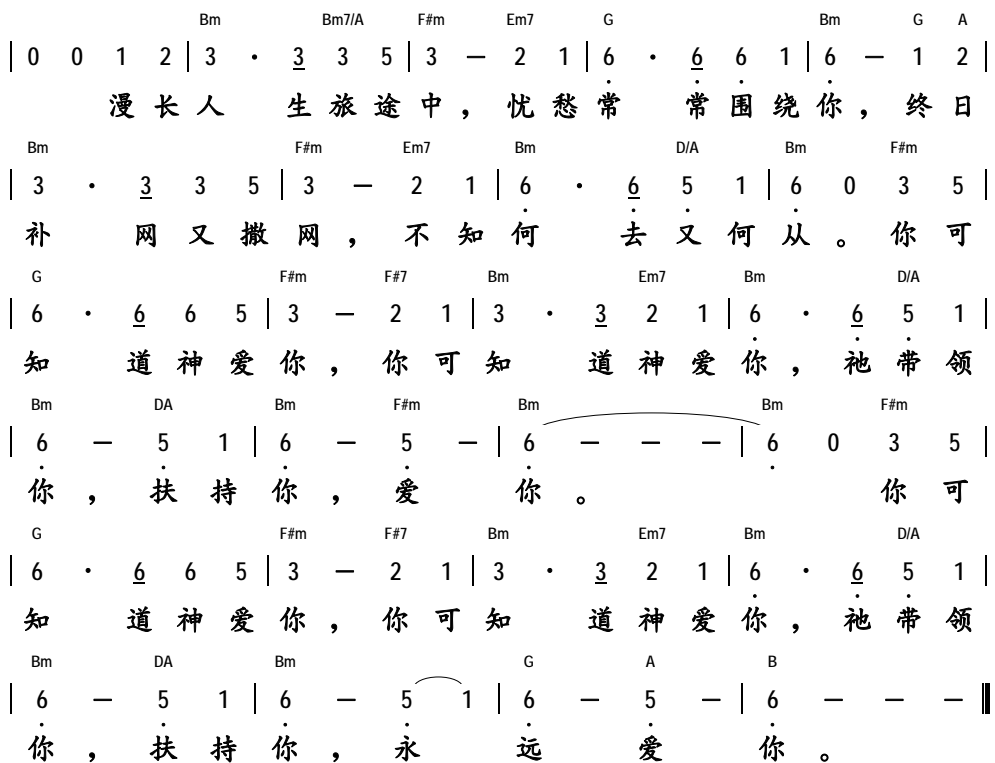 Bm Bm7/A F#m Em7 G Bm G A
| 0 0 1 2 | 3 · 3 3 5 | 3 — 2 1 | 6 · 6 6 1 | 6 — 1 2 |
漫长人 生旅途中，忧愁常 常围绕你，终日
Bm F#m Em7 Bm D/A Bm F#m
| 3 · 3 3 5 | 3 — 2 1 | 6 · 6 5 1 | 6 0 3 5 |
补 网又撒网，不知何 去又何从。你可
G F#m F#7 Bm Em7 Bm D/A
| 6 · 6 6 5 | 3 — 2 1 | 3 · 3 2 1 | 6 · 6 5 1 |
知 道神爱你，你可知 道神爱你，祂带领
Bm DA Bm F#m Bm Bm F#m
| 6 — 5 1 | 6 — 5 — | 6 — — — | 6 0 3 5 |
你，扶持你，爱 你。 你可
G F#m F#7 Bm Em7 Bm D/A
| 6 · 6 6 5 | 3 — 2 1 | 3 · 3 2 1 | 6 · 6 5 1 |
知 道神爱你，你可知 道神爱你，祂带领
Bm DA Bm G A B
| 6 — 5 1 | 6 — 5 1 | 6 — 5 — | 6 — — — ‖
你，扶持你，永 远 爱 你。